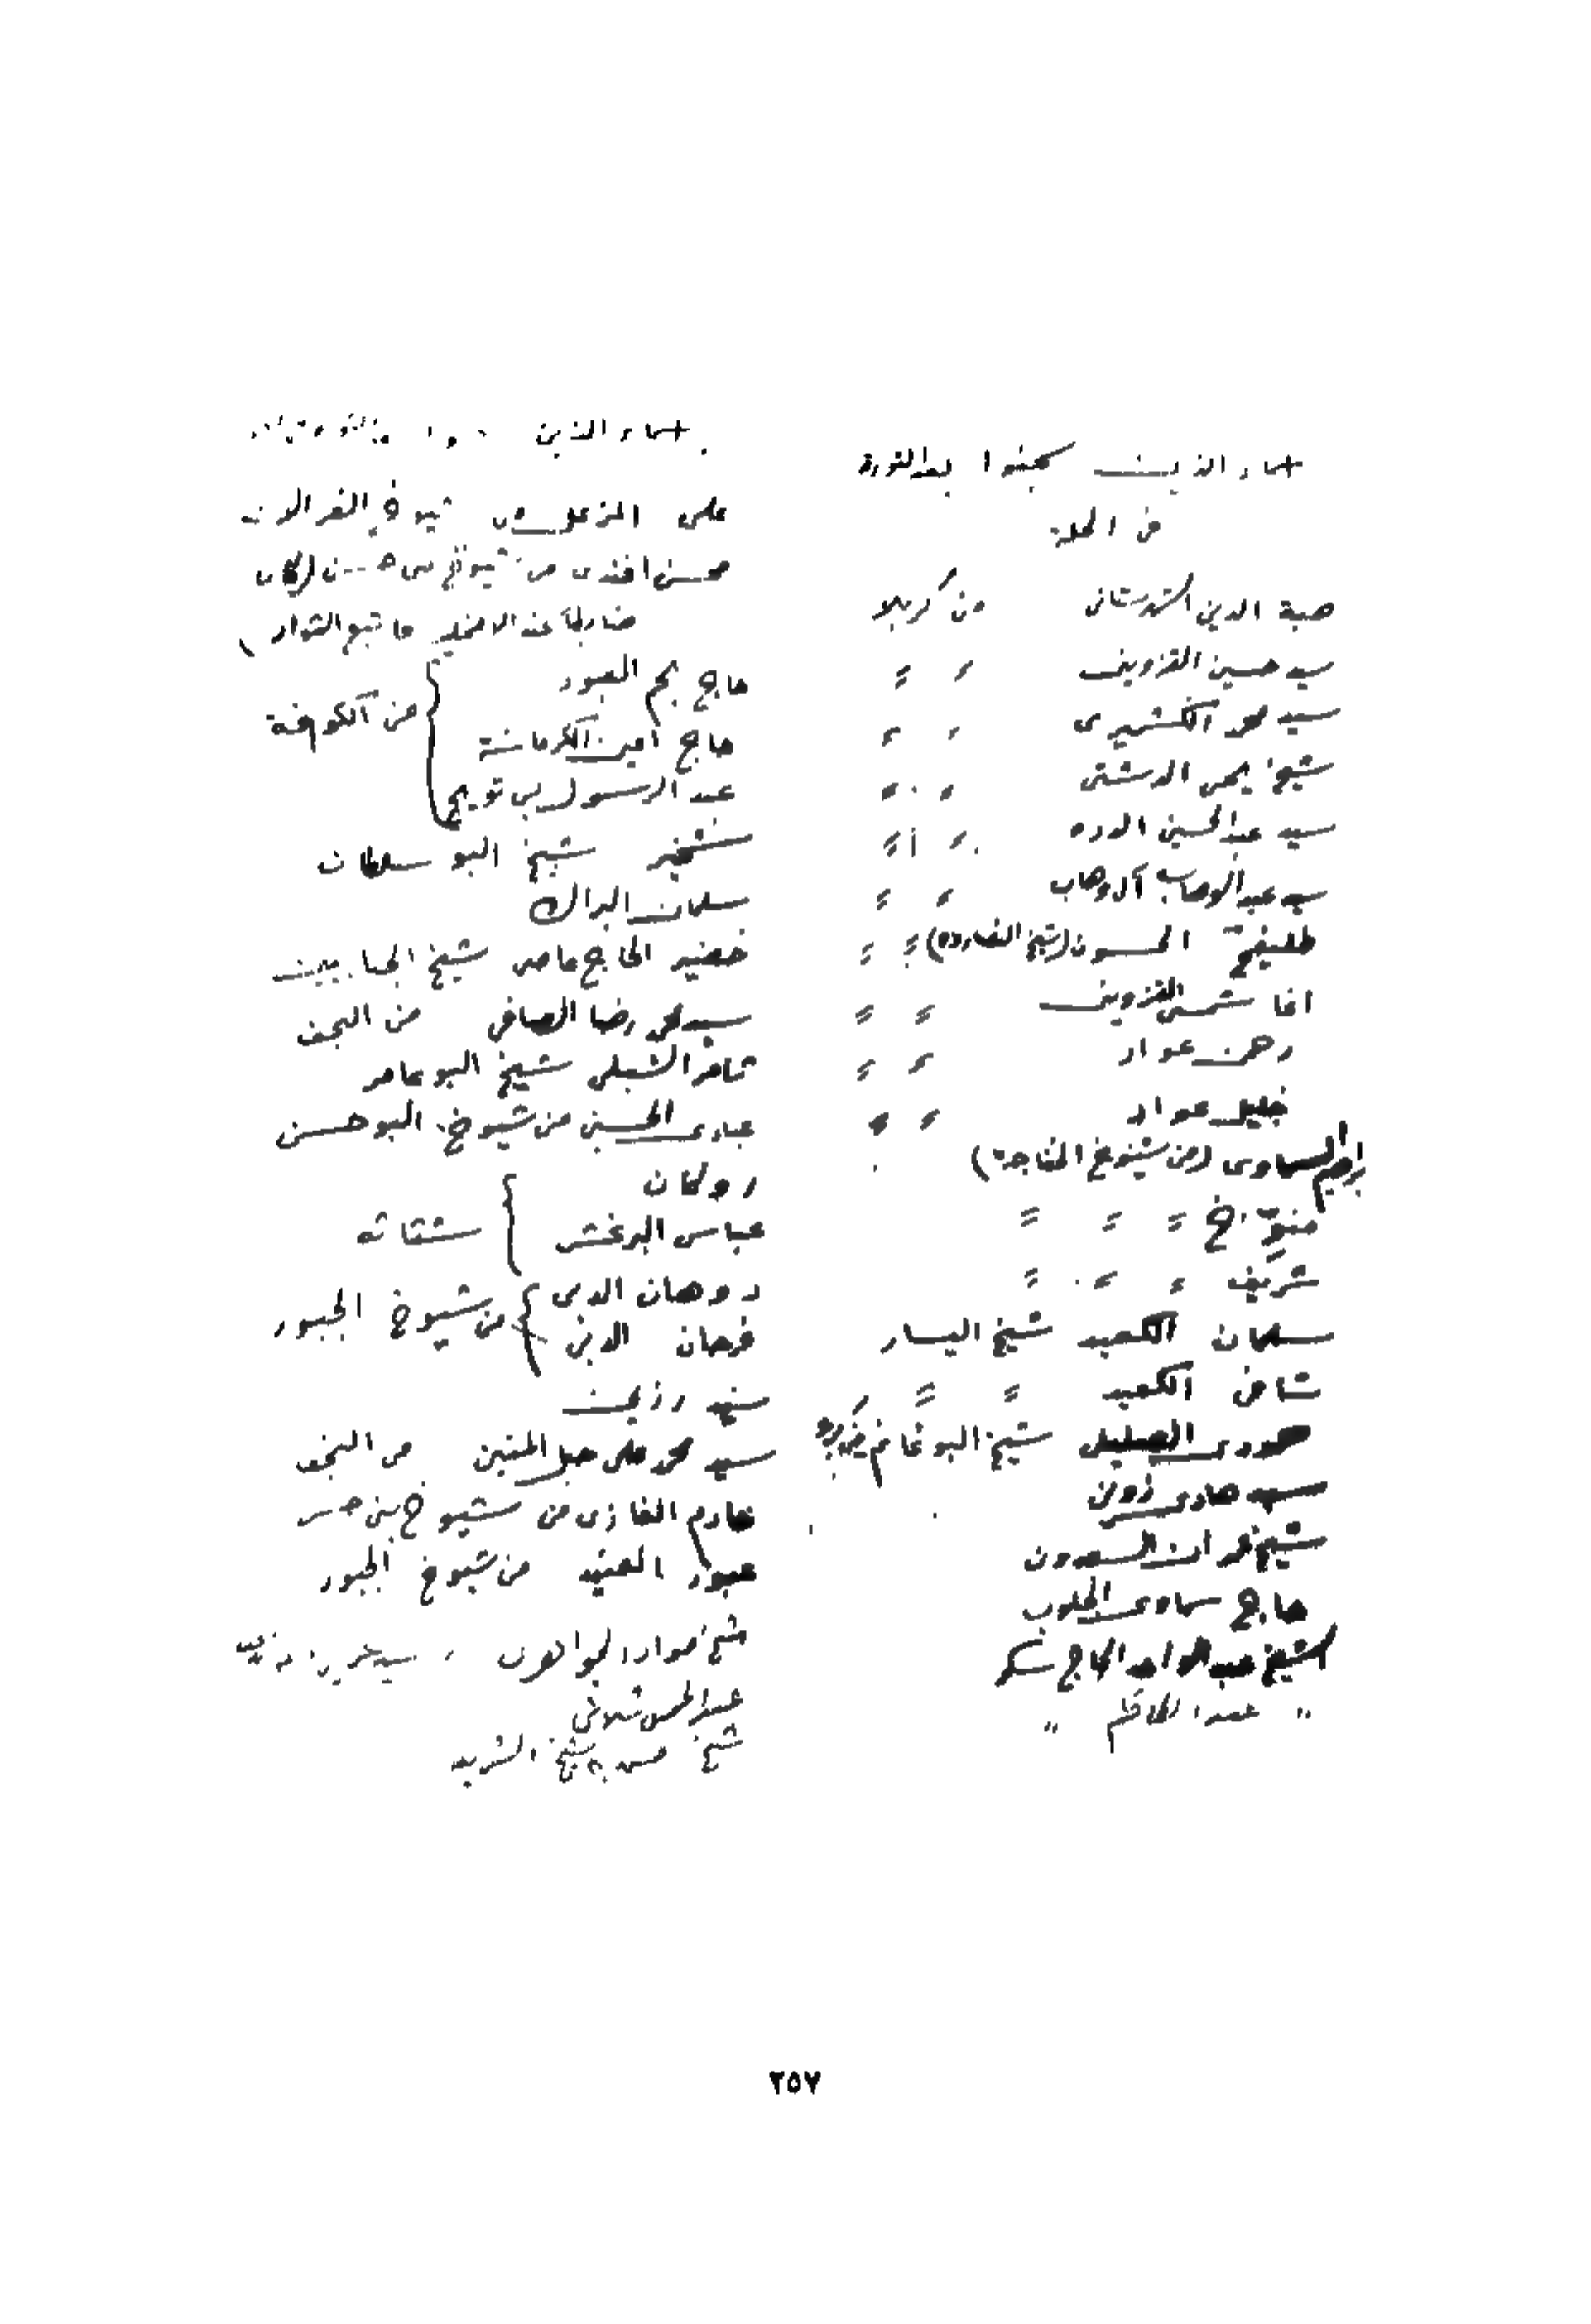 اسماء الذين سجنوا بعد الثورة
في الحلة
هبة الدين الشهرستاني من كربلا
سيد حسين القزويني 〃 〃
سيد محمد الكشميري 〃 〃
شيخ يحيى الرشتي 〃 〃
سيد عبد الحسين الدده 〃 〃
سيد عبد الوهاب آل وهاب 〃 〃
طليفح الحسون (شيخ النصاروه) 〃 〃
اغا شمس القزويني 〃 〃
رحمن عواد 〃 〃
خليل عواد 〃 〃
ابراهيم السماوي (من شيوخ الخفاجة)
〃 〃 〃
شريف 〃 〃 〃
سلمان الكعيد شيخ اليسار
الكعيد 〃 〃
شيخ البو غانم
سيد هادي زوين
شيخ عمران السعدون
حاج سماوي الجلوب
الشيخ عبد الواحد الحاج سكر
〃 عبد الكاظم 〃
اسماء الذين
علي المزعل من شيوخ الغزالات
محسن افندي من شيوخ بني حسن
ضابطاً عند واتبع الثوار
حاج نجم العبود
حاج امين الكرماشة
عبد الرسول تويج
من الكوفة
شخير شيخ البو سلطان
سلمان البراك
خضير الحاج عاصي شيخ الجنابيين
سيد محمد رضا الصافي من النجف
الشبلي شيخ البو عامر
عبادي الحسين من شيوخ البو حسن
روكان
عباس البرغش
شثاثه
دوهان الدبي
فرحان الدبي
من شيوخ الجبور
سيد محمد علي حبل المتين من النجف
خادم الغازي من شيوخ بني حسن
عبود العنيد من شيوخ الجبور
شيخ جواد الجواهري
عبد الحسين شلاش
شيخ
٢٥٧